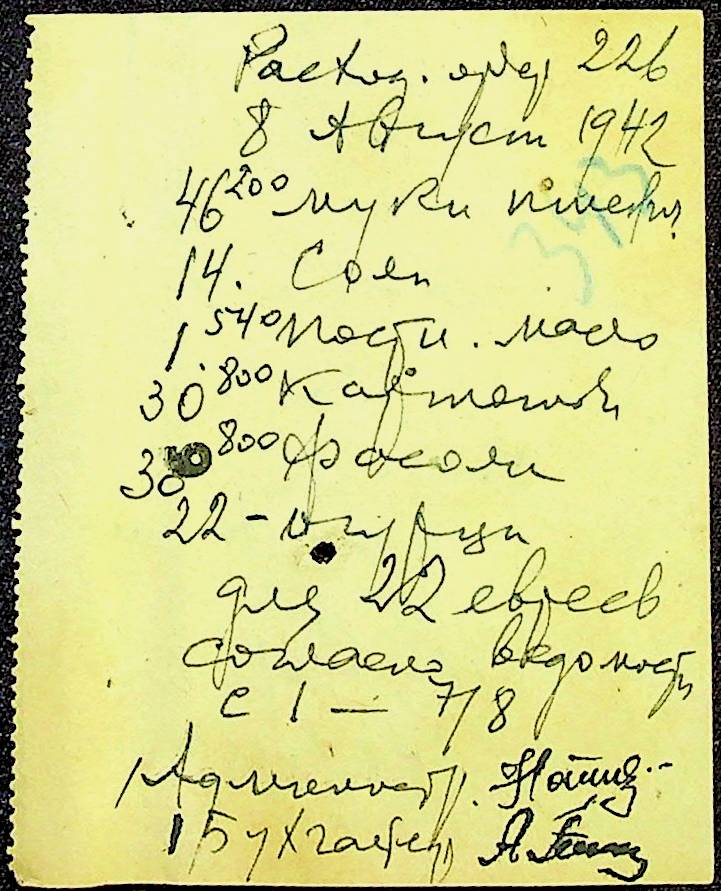 Расход. орде 226
8 Август 1942
46 200 муки пшен.
14. Соли
1. 540 пост. масло
30 800 Картошки
30 800 Фасоли
22 - огурци
для 22 евреев
согласно ведомости
с 1 — 7/8
Администр.
Бухгалтер
343